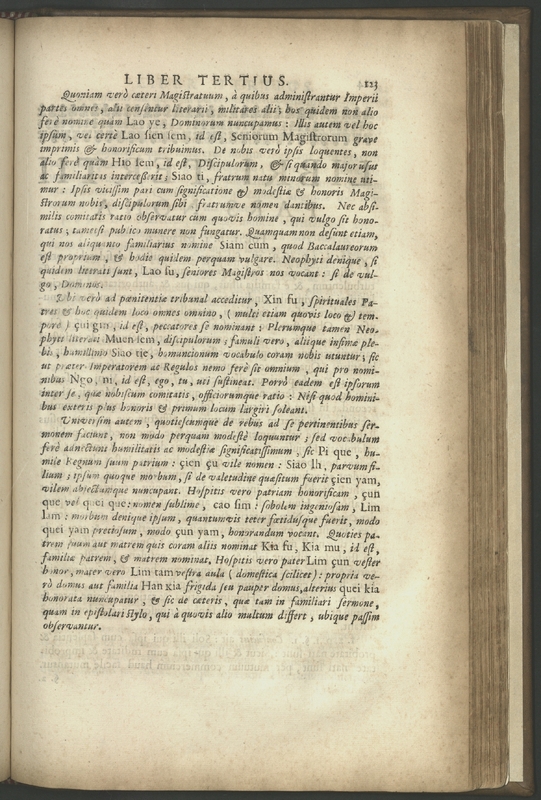 LIBER TERTIUS. 123
Quoniam verò cæteri Magistratuum, à quibus administrantur Imperii
partes omnes, alii censentur literarii, militares alii; hos quidem non alio
ferè nomine quàm Lao ye, Dominorum nuncupamus: Illis autem vel hoc
ipsum, vel certè Lao sien sem, id est, Seniorum Magistrorum grave
imprimis & honorificum tribuimus. De nobis verò ipsis loquentes, non
alio ferè quàm Hio sem, id est, Discipulorum, & si quando major usus
ac familiaritas intercesserit; Siao ti, fratrum natu minorum nomine uti-
mur: Ipsis vicissim pari cum significatione & modestiæ & honoris Magi-
strorum nobis, discipulorum sibi fratrumve nomen dantibus. Nec absi-
milis comitatis ratio observatur cum quovis homine, qui vulgo sit hono-
ratus; tametsi publico munere non fungatur. Quamquam non desunt etiam,
qui nos aliquanto familiarius nomine Siam cum, quod Baccalaureorum
est proprium, & hodie quidem perquam vulgare. Neophyti denique, si
quidem literati sunt, Lao su, seniores Magistros nos vocant: si de vul-
go, Dominos.
Ubi verò ad pœnitentiæ tribunal acceditur, Xin fu, spirituales Pa-
tres & hoc quidem loco omnes omnino, (multi etiam quovis loco & tem-
pore) çui gin, id est, peccatores se nominant: Plerumque tamen Neo-
phyti literati Muen sem, discipulorum; famuli vero, aliique infimæ ple-
bis, humillimo Siao tie, homuncionum vocabulo coram nobis utuntur; sic
ut præter Imperatorem ac Regulos nemo ferè sit omnium, qui pro nomi-
nibus Ngo, ni, id est, ego, tu, uti sustineat. Porrò eadem est ipsorum
inter se, quæ nobiscum comitatis, officiorumque ratio: Nisi quod homini-
bus exteris plus honoris & primum locum largiri soleant.
Universim autem, quotiescumque de rebus ad se pertinentibus ser-
monem faciunt, non modo perquam modestè loquuntur; sed vocabulum
ferè adnectunt humilitatis ac modestiæ significatissimum, sic Pi que, hu-
mile Regnum suum patrium: çien çu vile nomen: Siao lh, parvum fi-
lium; ipsum quoque morbum, si de valetudine quæsitum fuerit çien yam,
vilem abjectumque nuncupant. Hospitis vero patriam honorificam, çun
que vel quei que: nomen sublime, cao sim: sobolem ingeniosam, Lim
lam: morbum denique ipsum, quantumvis teter fœtidusque fuerit, modo
quei yam pretiosum, modo çun yam, honorandum vocant. Quoties pa-
trem suum aut matrem quis coram aliis nominat Kia fu, Kia mu, id est,
familiæ patrem, & matrem nominat. Hospitis vero pater Lim çun vester
honor, mater vero Lim tam vestra aula (domestica scilicet): propria ve-
rò domus aut familia Han kia frigida seu pauper domus, alterius quei kia
honorata nuncupatur, & sic de cæteris, quæ tam in familiari sermone,
quam in epistolari stylo, qui à quovis alio multum differt, ubique passim
observantur.